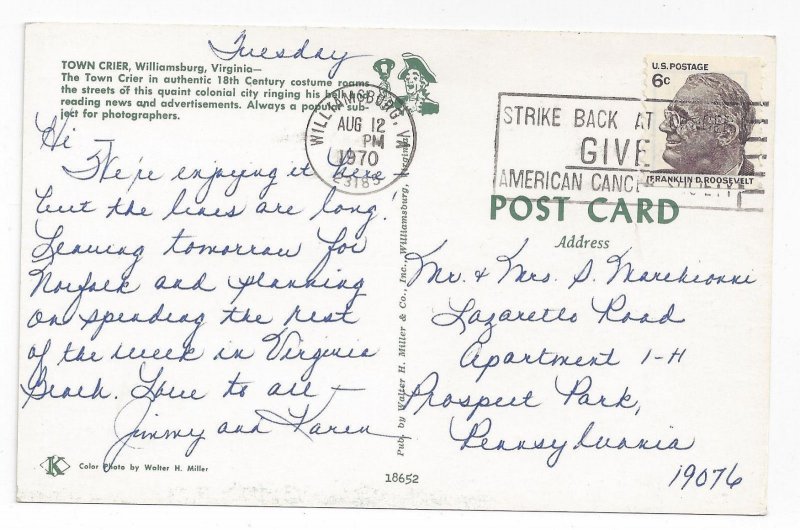 Tuesday
TOWN CRIER, Williamsburg, Virginia—
The Town Crier in authentic 18th Century costume roams
the streets of this quaint colonial city ringing his bell and
reading news and advertisements. Always a popular sub-
ject for photographers.
Hi —
We're enjoying it here —
but the lines are long!
Leaving tomorrow for
Norfolk and planning
on spending the rest
of the week in Virginia
Beach. Love to all —
Jimmy and Karen
K Color Photo by Walter H. Miller
Pub. by Walter H. Miller & Co., Inc., Williamsburg, Virginia
18652
WILLIAMSBURG, VA
AUG 12
PM
1970
23185
STRIKE BACK AT
GIVE
AMERICAN CANCER
U.S. POSTAGE
6c
FRANKLIN D. ROOSEVELT
POST CARD
Address
Mr. & Mrs. S. Marchionni
Lazaretto Road
Apartment 1-H
Prospect Park,
Pennsylvania
19076